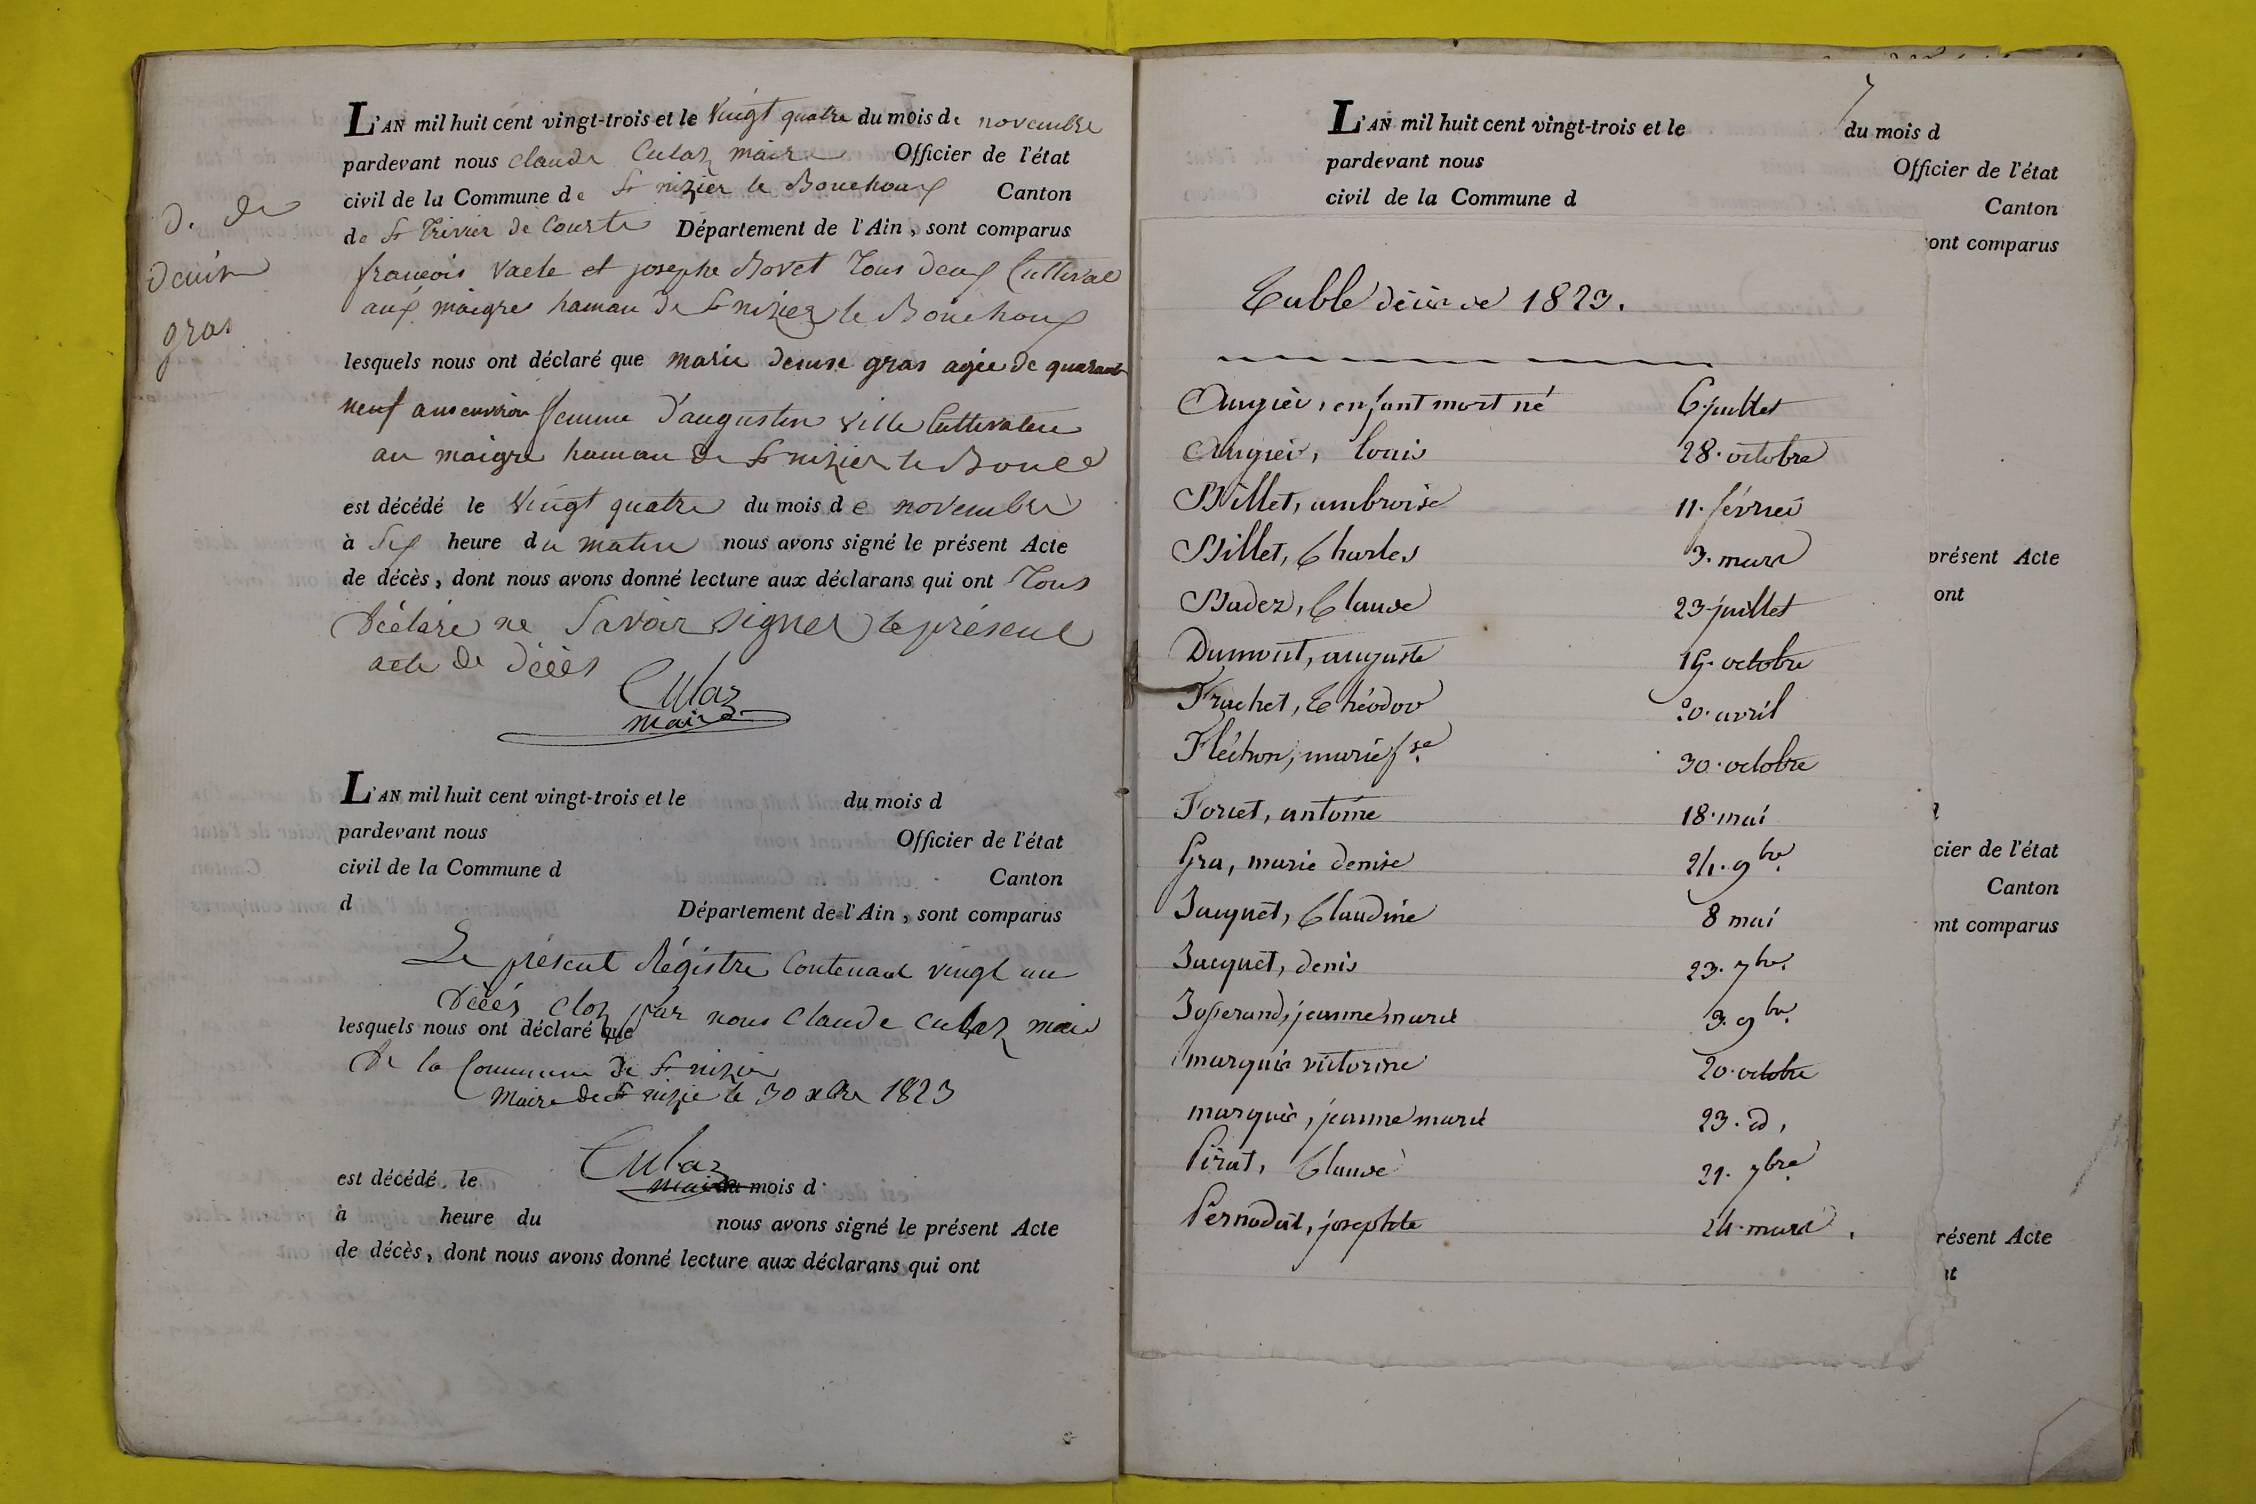 D. de
denise
gras
L'AN mil huit cent vingt-trois et le vingt quatre du mois de novembre
pardevant nous claude Culaz maire Officier de l'état
civil de la Commune de St nizier le Bouchoux Canton
de St Trivier de Courte Département de l'Ain, sont comparus
françois vaele et josephe Bovet Tous deux Cultivat
aux maigres hamau de St nizier le Bouchoux
lesquels nous ont déclaré que marie denise gras agée de quarante
neuf ans environ femme d'augustin ville Cultivateur
au maigre hamau de St nizier le Bouce
est décédé le vingt quatre du mois de novembre
à Six heure du matin nous avons signé le présent Acte
de décès, dont nous avons donné lecture aux déclarans qui ont Tous
Déclaré ne Savoir signer le présent
acte de décès
Culaz
maire
L'AN mil huit cent vingt-trois et le du mois d
pardevant nous Officier de l'état
civil de la Commune d Canton
d Département de l'Ain, sont comparus
Le présent Régistre Contenant vingt un
Décés cloz par nous Claude Culaz maire
lesquels nous ont déclaré que
de la Commune de St nizier
Maire de St nizie le 30 xbre 1823
Culaz
maire
est décédé le du mois d
à heure du nous avons signé le présent Acte
de décès, dont nous avons donné lecture aux déclarans qui ont
7
L'AN mil huit cent vingt-trois et le du mois d
pardevant nous Officier de l'état
civil de la Commune d Canton
ont comparus
Table décès de 1823.
Augier, enfant mort né 6 juillet
Augier, louis 28. octobre
Billet, ambroise 11. février
Billet, Charles 3. mars
Badez, Claude 23 juillet
Dumont, auguste 15. octobre
Frachet, Théodor 20. avril
Fléchon, marie fse 30. octobre
Foret, antoine 18. mai
Gra, marie denise 24. 9bre.
Jacquet, Claudine 8 mai
Jacquet, denis 23. 7bre.
Josserand, jeanne marie 3. 9bre.
marquis victorine 20. octobre
marquis, jeanne marie 23. id,
Pirat, Claude 21. 7bre
Pernodat, josephte 24. mars.
présent Acte
ont
cier de l'état
Canton
ont comparus
résent Acte
nt